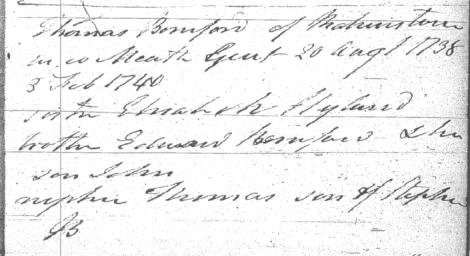 Thomas Bomford of Rahinstown
in co Meath Gent 20 Augt 1738
3 Feb 1740
sister Elizabeth Hyland
brother Edward Bomford & his
son John
nephew Thomas son of Stephen
B